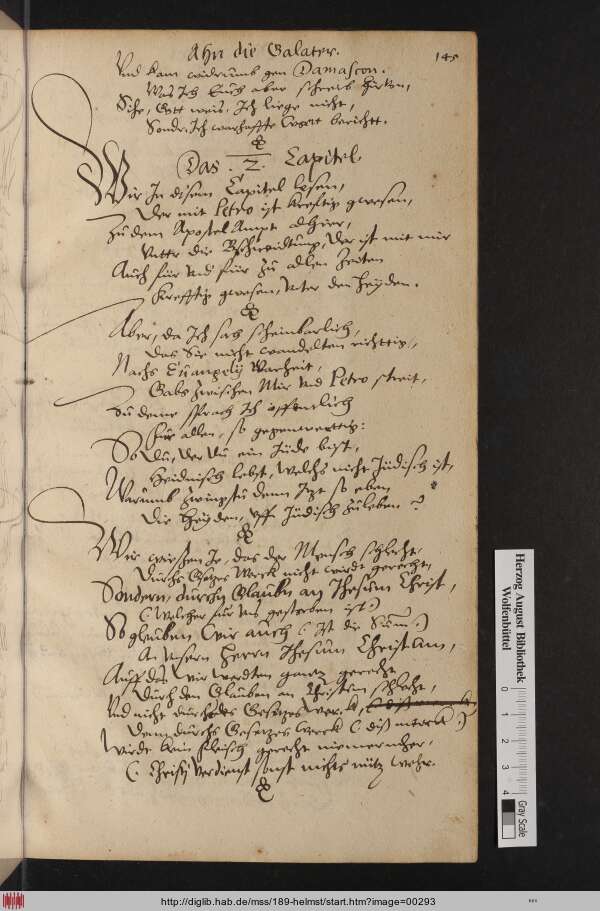 Ahn die Galater.
145
Vnd kam widrumb gen Damascon.
Was Ich Euch aber schreib hirbon,
Sihe, Gott weis, Ich liege nicht,
Sondr Ich warhaffte Wort bericht.
Das .2. Capitel.
Wir In disem Capitel lesen,
Der mit Petro ist krefftig gwesen,
Zu dem Apostel Ampt alhier,
Vnter die Bschneidtung, Der ist mit mir
Auch für vnd für Zu allen Zeiten
Krefftig gwesen, vnter den Heyden.
Aber, da Ich sach scheinbarlich,
Das Sie nicht wandelten richttig,
Nachs Euangelij Warheit,
Gabs zwischen Mir vnd Petro streit,
Zu deme sprach Ich öffentlich
Für allen, so gegenwerttig:
So Du, der Du ein Jüde bist,
Heidnisch lebst, welchs nicht Jüdisch ist,
Warumb zwingstu denn Itzt so eben
Die Heyden, vff Jüdisch Zu leben?
Wir wissen Je, das der Mensch schlecht,
Durchs Gsetzes Werck nicht wirdt gerecht,
Sondern, durchn Glaubn an Jhesum Christ,
(Welcher für vns gestorben ist.)
So glauben wir auch (Ist die Sum̄.)
An vnsern Herrn Jhesum Christum,
Auff das wir werdten gantz gerecht
Durch den Glauben an Christum schlecht,
Vnd nicht durch des Gesetzes werck,
Denn durchs Gesetzes werck (diß merck)
Wirdt kein fleisch gerecht nimermher,
(Christj verdienst sonst nichts nütz wehr.
Herzog August Bibliothek
Wolfenbüttel
0 1 2 3 4
Gray Scale
http://diglib.hab.de/mss/189-helmst/start.htm?image=00293